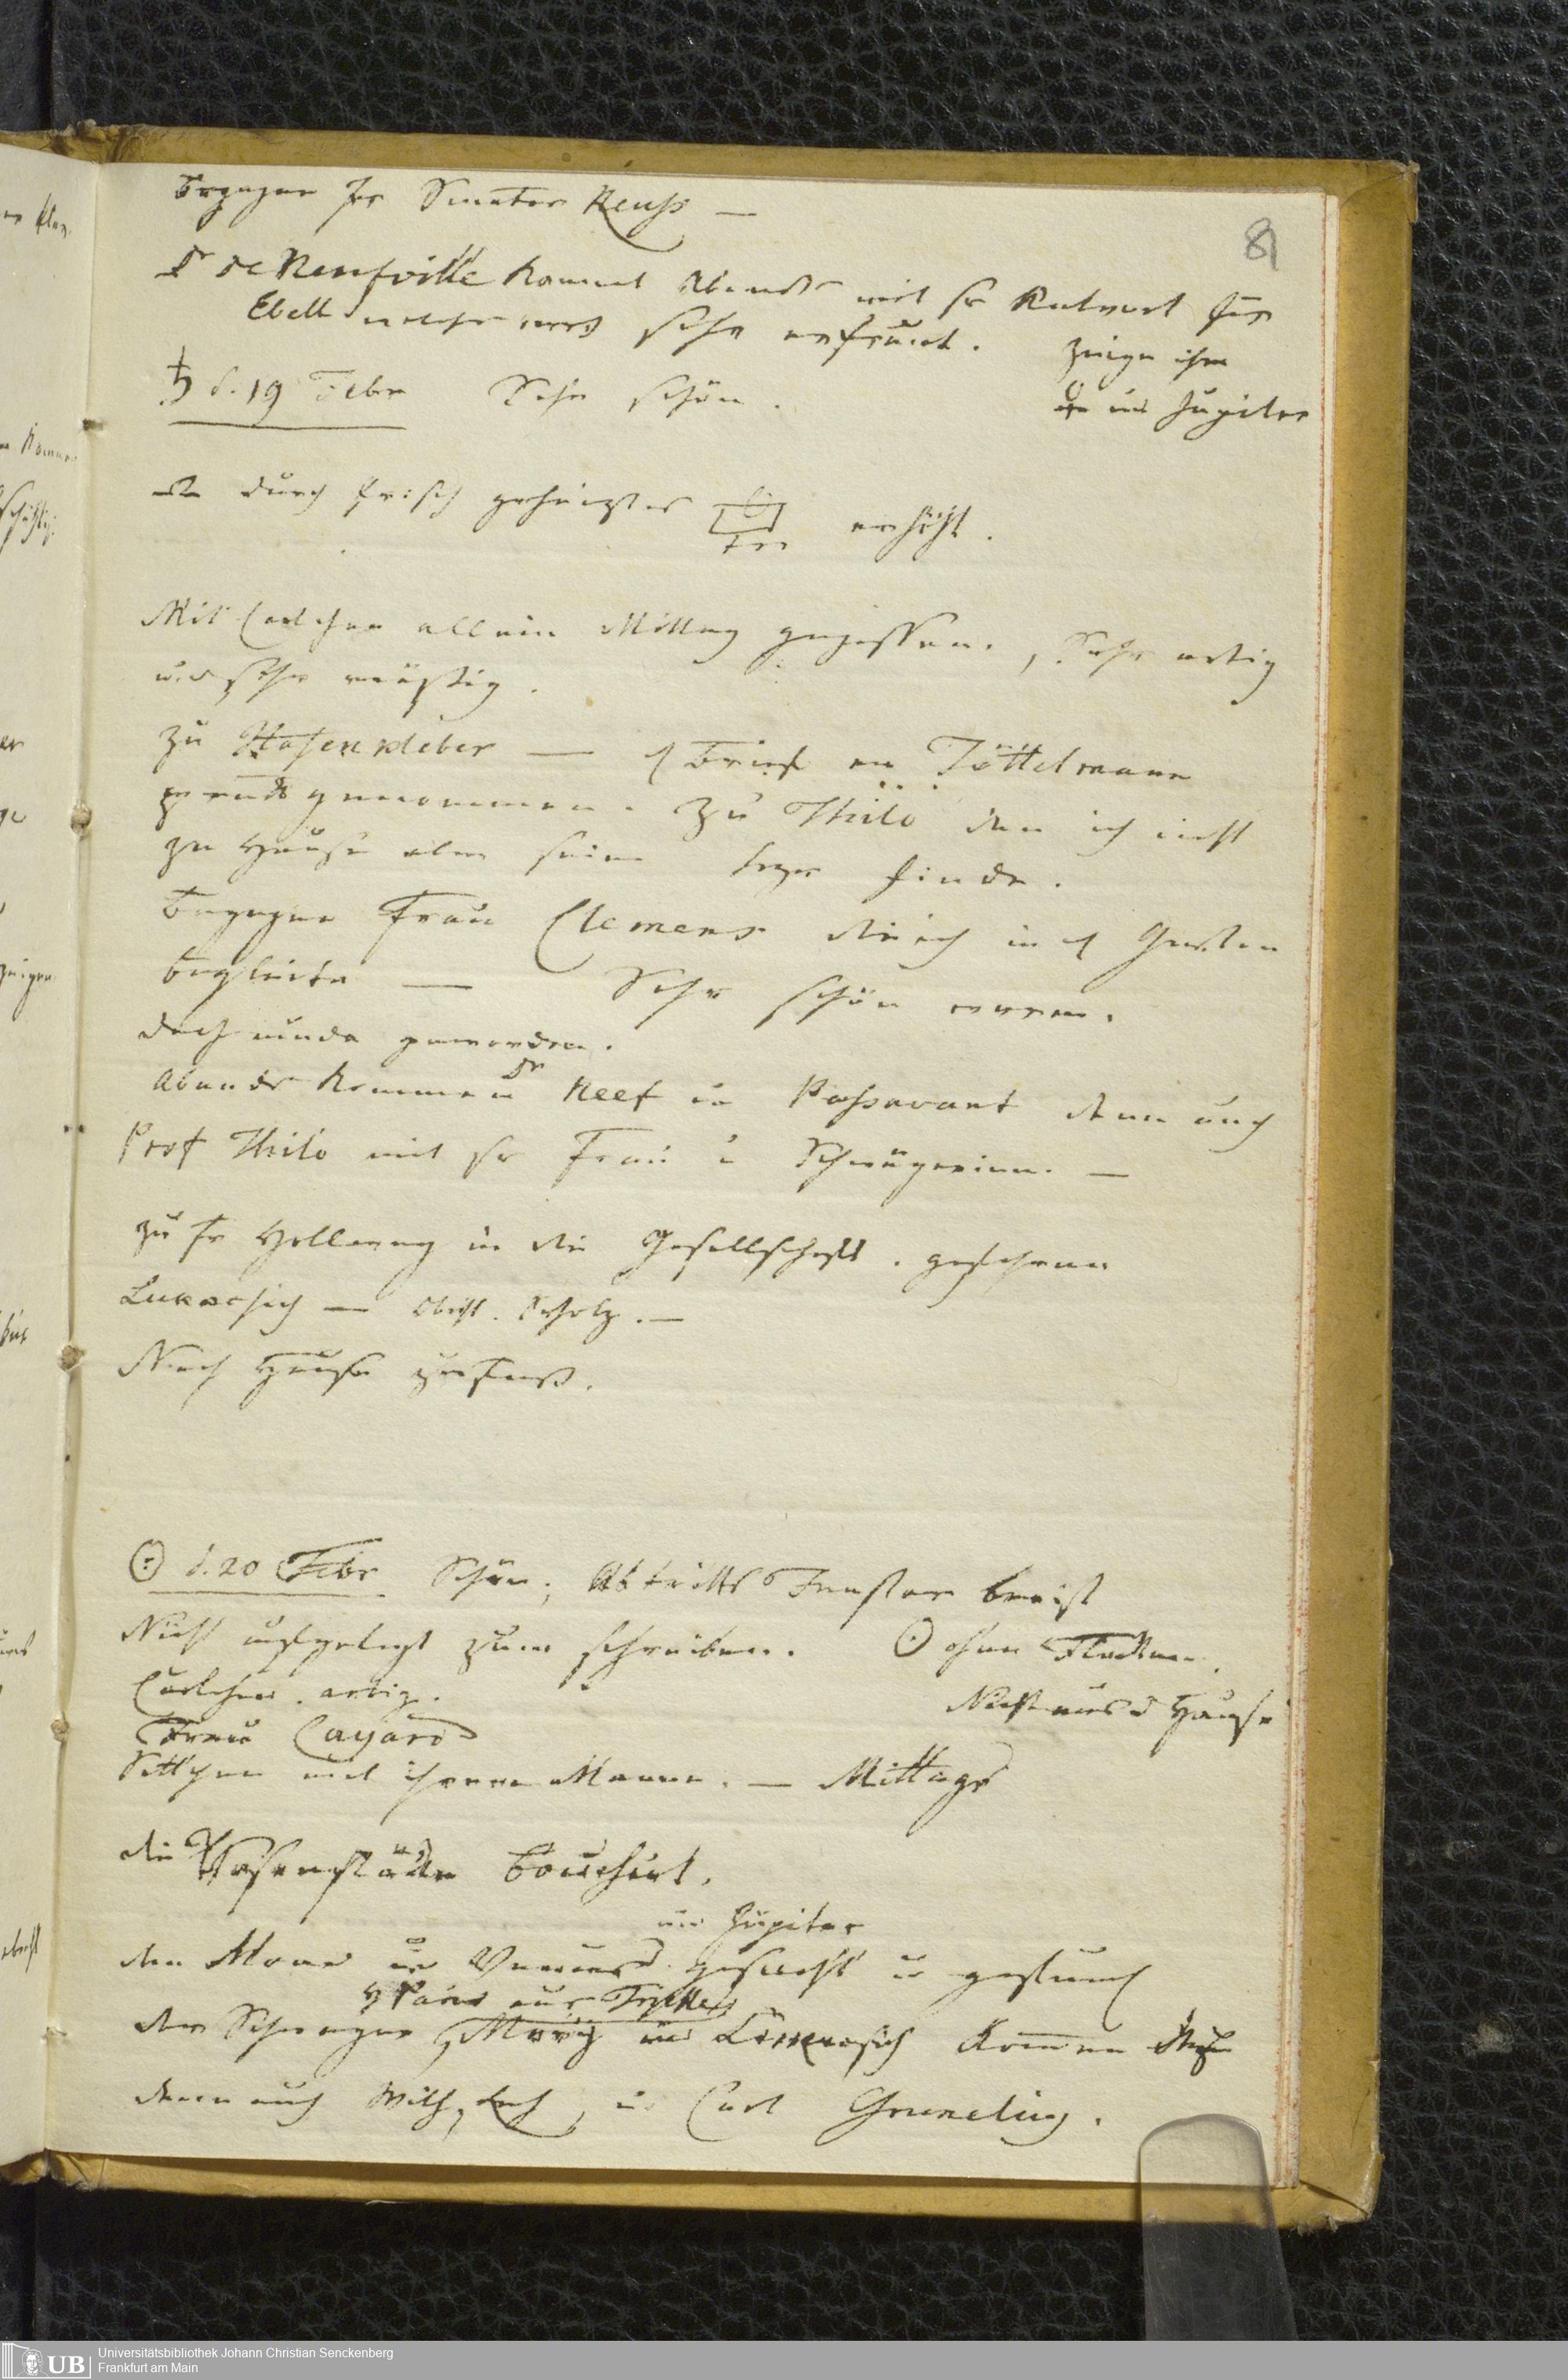 81
Begegne Hr Senator Reuß —
Dr de Neufville kommt Abends mit sr Antwort für
Ebell welcher sehr erfreut. zeige ihm
♄ d. 19 Febr Sehr schön. und Jupiter
durch frisch geheiztes erhöht.
Mit Carlchen allein Mittag gegessen. Sehr artig
und sehr mäßig.
zu — Brief an Töttelmann
genommen. Zu Thilo den ich nicht
zu Hause aber seine finde.
Begegne Frau Clemens die ich in d Garten
begleite — Sehr schön warm.
doch müde geworden.
Abends kommen Dr Neef u Passavant dann auch
Prof Thilo mit sr Frau u Schwägerinn. —
zu Fr Hollweg in die Gesellschaft. gefahren
Lukacsich — Obrist. Scholz. —
Nach Hause zu Fuß.
☉ d. 20 Febr Schön; Abtritts Fenster beeist
Nicht aufgelegt zum schreiben. ☉ ohne Flecken.
Carlchen artig. Nicht aus d Hause
Frau Cayard
Settchen mit ihrem Manne. — Mittags
die Bouchirt.
und Jupiter
den Mond u Venus gesucht u
der Schwager Moriz und kommen
dann auch Wilh, u. Carl Gruneliuß.
Universitätsbibliothek Johann Christian Senckenberg
UB Frankfurt am Main